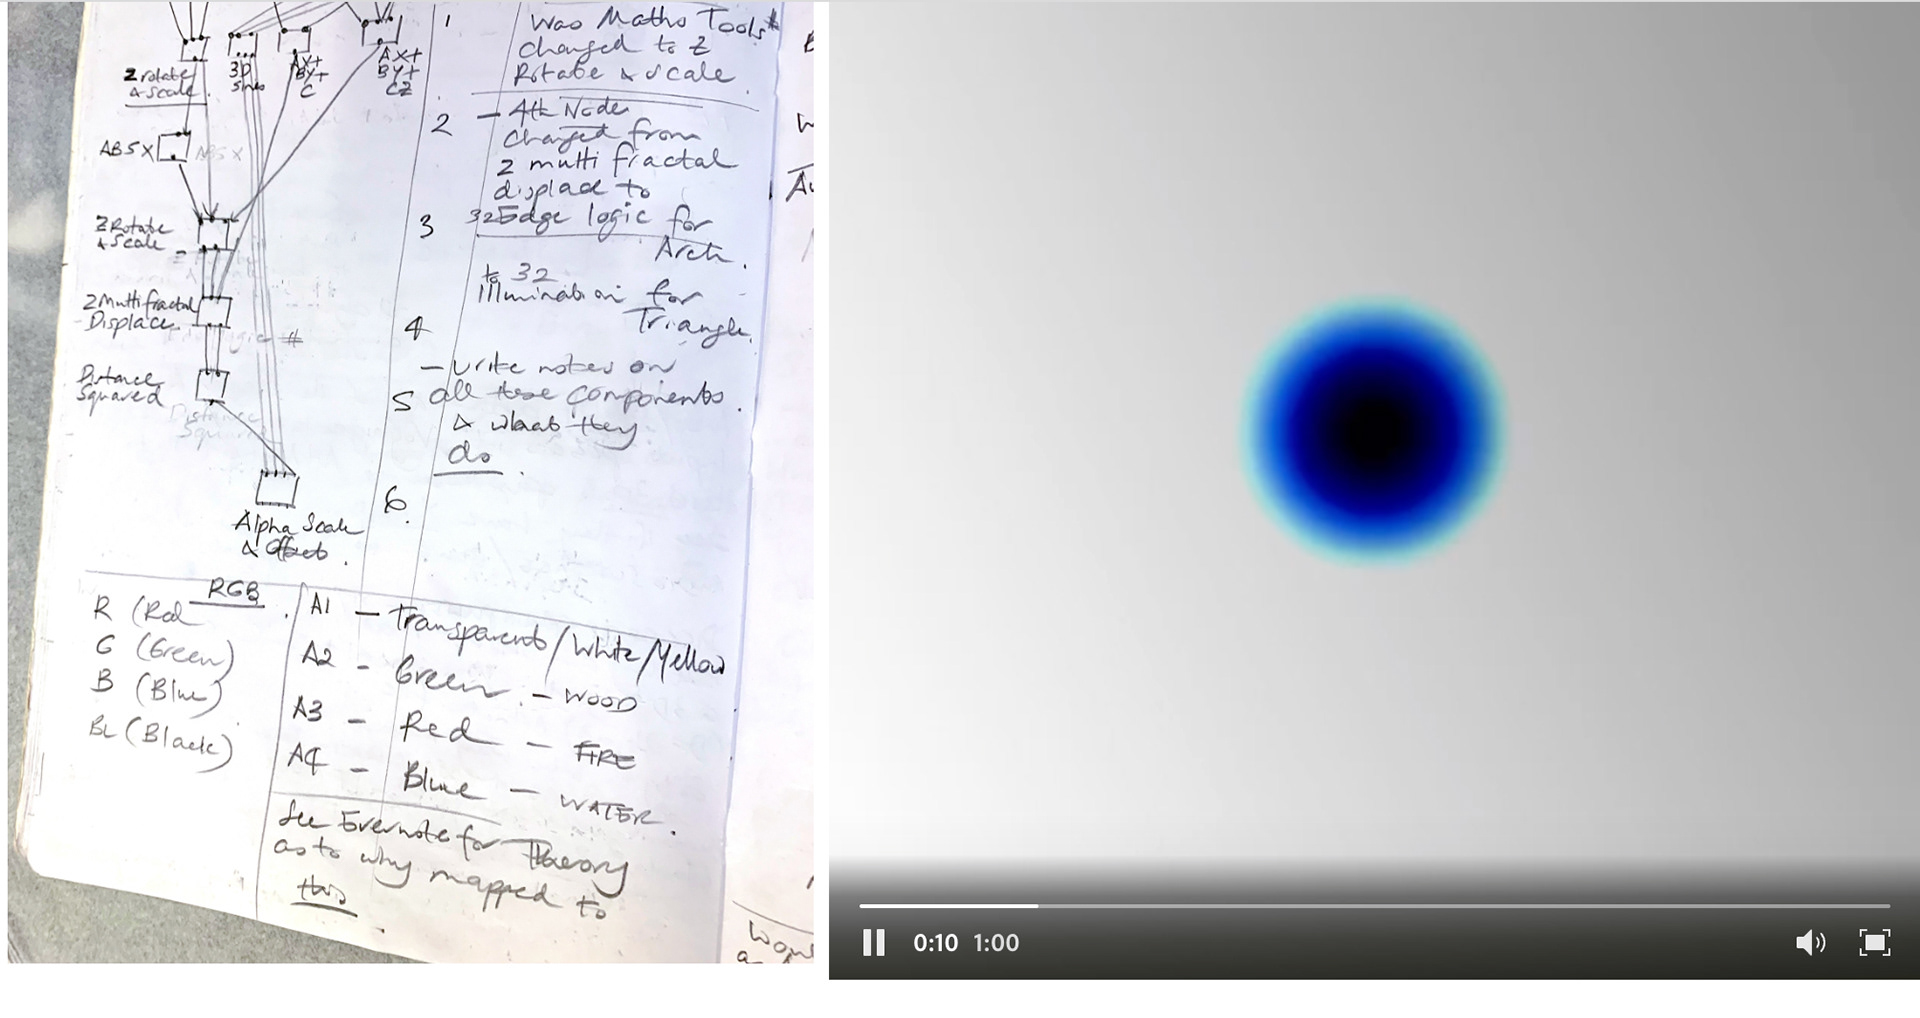 Z rotate
& scale
3D
Sines
AX+
BY+
C
AX+
BY+
CZ
ABS X
ABS X
Z Rotate
& Scale
Z Multi fractal
Displace
Distance
Squared
Distance
Squared
Alpha Scale
& Offset.
1
Was Maths Tools*
changed to Z
Rotate & scale.
2
- 4th Node
changed from
Z multi fractal
displace to
3
32 Edge logic for
Arch.
to 32
Illumination for
Triangle.
4
- write notes on
5
all these components.
& what they
do.
6.
RGB
R (Red
G (Green)
B (Blue)
BL (Black)
A1 - Transparent/White/Yellow
A2 - Green - WOOD
A3 - Red - FIRE
A4 - Blue - WATER.
See Evernote for Theory
as to why mapped to
this.
0:10 1:00